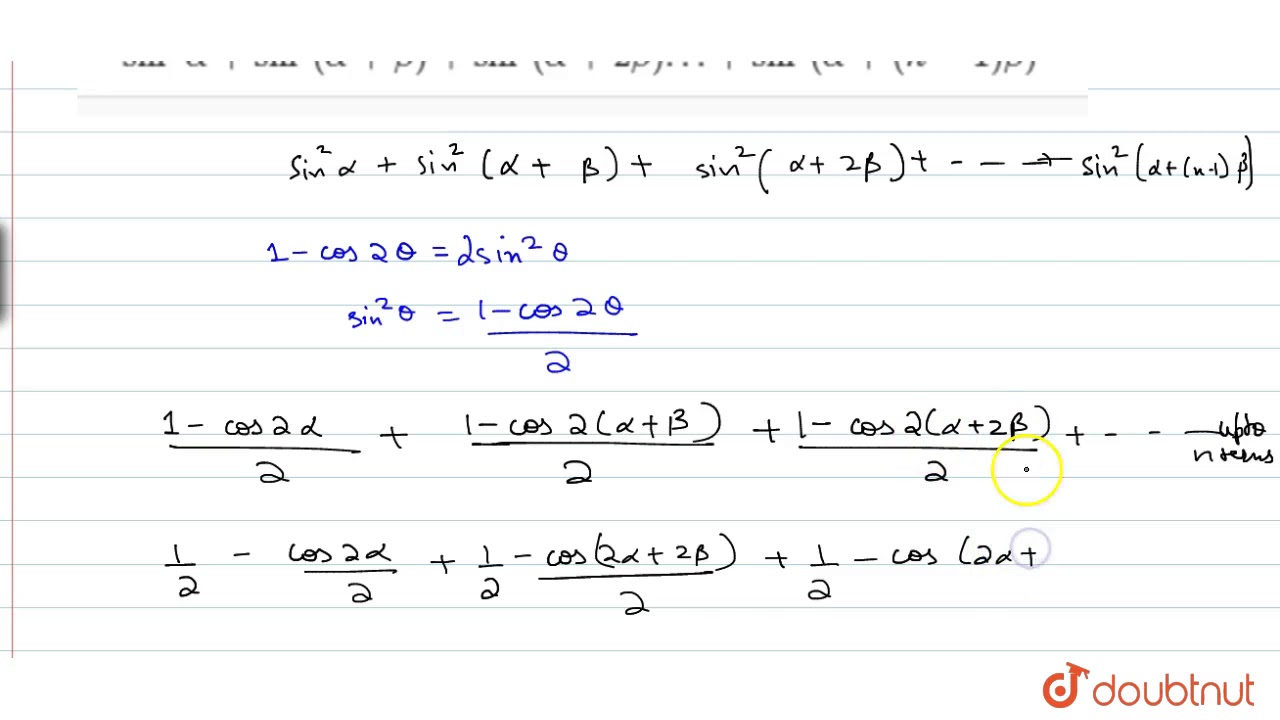 sin²α + sin²(α + β) + sin²(α + 2β) + - - → sin²(α+(n-1)β)
1 - cos 2θ = 2sin²θ
sin²θ = (1 - cos 2θ)/2
(1 - cos 2α)/2 + (1 - cos 2(α+β))/2 + (1 - cos 2(α+2β))/2 + - - — upto n terms
1/2 - cos 2α/2 + 1/2 - cos(2α + 2β)/2 + 1/2 - cos (2α +
doubtnut